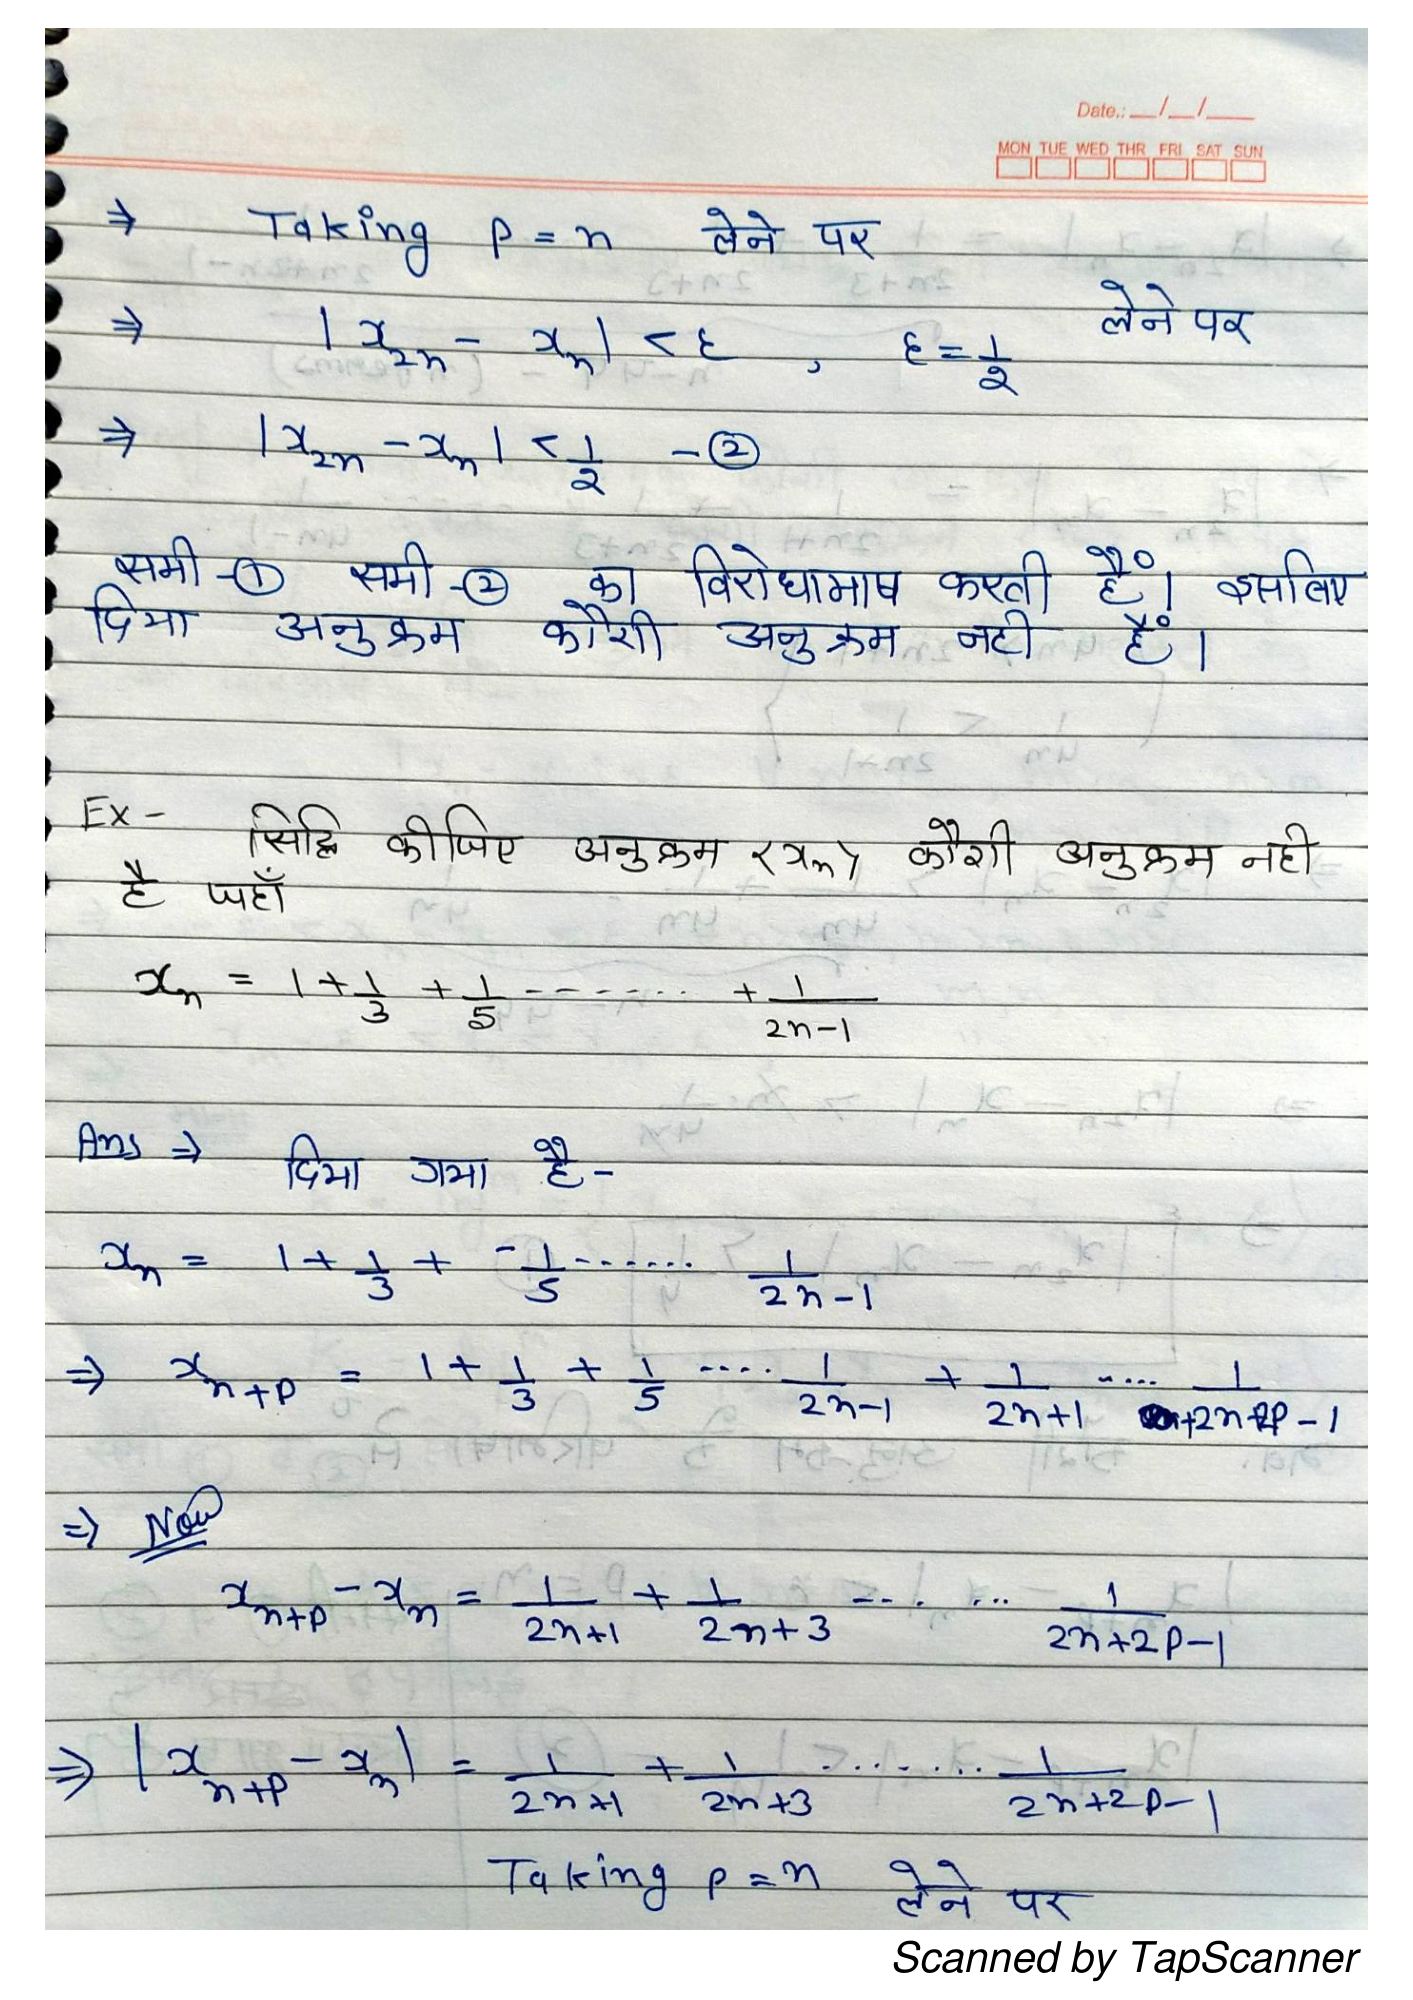 Date.: __/__/____
MON TUE WED THR FRI SAT SUN
⇒ Taking P = n लेने पर
⇒ |x₂ₙ - xₙ| < ε , ε = 1/2 लेने पर
⇒ |x₂ₙ - xₙ| < 1/2 - ②
समी-① समी-② का विरोधाभाष करती हैं। इसलिए
दिया अनुक्रम कौशी अनुक्रम नही हैं।
Ex - सिद्धि कीजिए अनुक्रम <xₙ> कौशी अनुक्रम नही
है जहाँ
xₙ = 1 + 1/3 + 1/5 ------- + 1/(2n-1)
Ans ⇒ दिया गया है -
xₙ = 1 + 1/3 + - 1/5 ------ 1/(2n-1)
⇒ xₙ₊ₚ = 1 + 1/3 + 1/5 .... 1/(2n-1) + 1/(2n+1) ..... 1/(2n+2p-1)
⇒ Now
xₙ₊ₚ - xₙ = 1/(2n+1) + 1/(2n+3) --- . ... 1/(2n+2p-1)
⇒ |xₙ₊ₚ - xₙ| = 1/(2n+1) + 1/(2n+3) ......... 1/(2n+2p-1)
Taking p = n लेने पर
Scanned by TapScanner